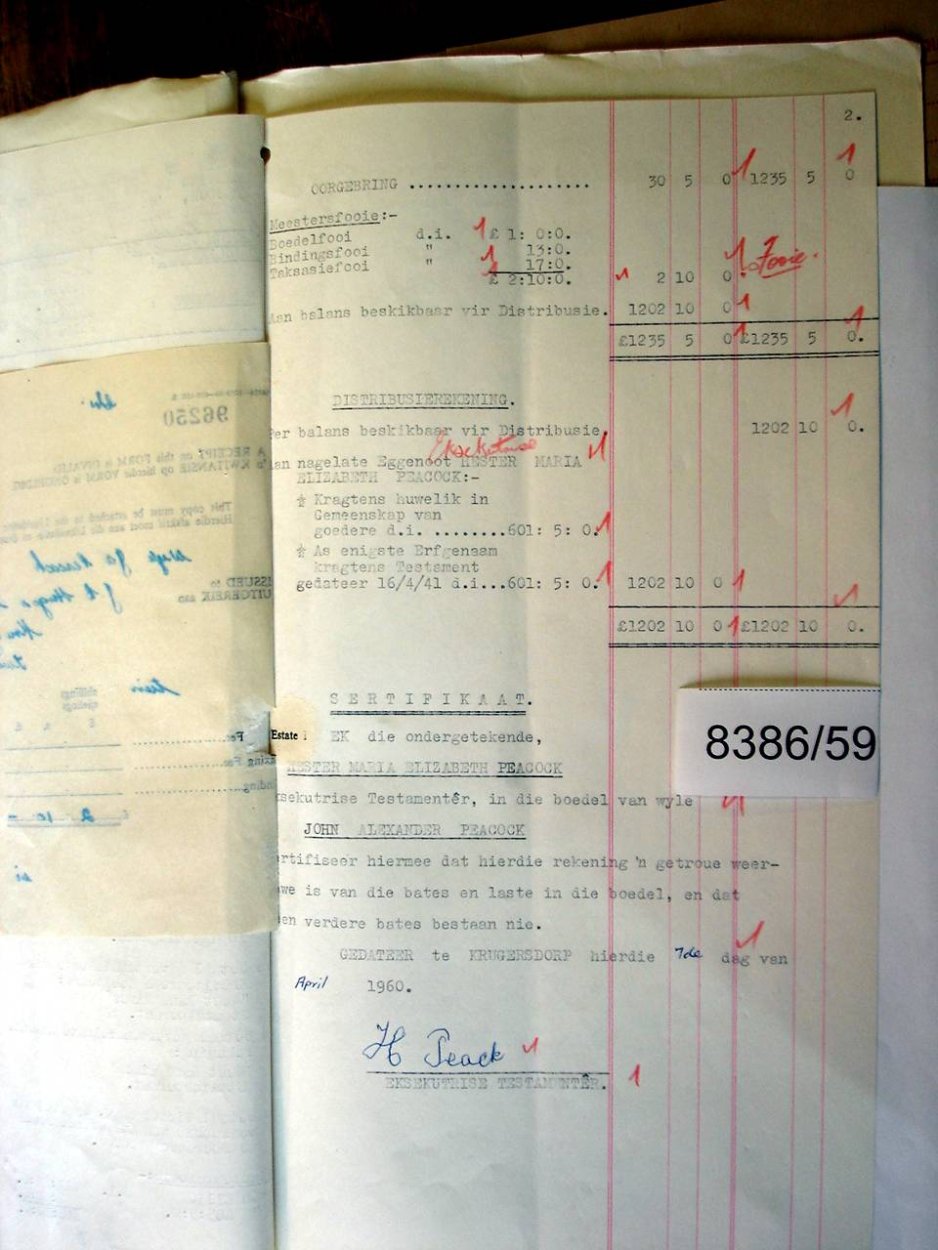 2.
OORGEBRING .................... 30 5 0 1235 5 0
Meestersfooie:-
Boedelfooi d.i. £ 1: 0:0.
Bindingsfooi " 13:0.
Taksasiefooi " 17:0.
£ 2:10:0. 2 10 0. Fooie.
Aan balans beskikbaar vir Distribusie. 1202 10 0
£1235 5 0 £1235 5 0.
DISTRIBUSIEREKENING.
Per balans beskikbaar vir Distribusie. 1202 10 0.
Eksekutrise
Aan nagelate Eggenoot HESTER MARIA
ELIZABETH PEACOCK:-
½ Kragtens huwelik in
Gemeenskap van
goedere d.i. ........601: 5: 0.
½ As enigste Erfgenaam
kragtens Testament
gedateer 16/4/41 d.i...601: 5: 0. 1202 10 0
£1202 10 0 £1202 10 0.
SERTIFIKAAT.
Estate EK die ondergetekende,
HESTER MARIA ELIZABETH PEACOCK
ksekutrise Testamentêr, in die boedel van wyle
JOHN ALEXANDER PEACOCK
rtifiseer hiermee dat hierdie rekening 'n getroue weer-
we is van die bates en laste in die boedel, en dat
en verdere bates bestaan nie.
GEDATEER te KRUGERSDORP hierdie 7de dag van
April 1960.
H Peack
EKSEKUTRISE TESTAMENTÊR.
8386/59
96250
A RECEIPT on this FORM is INVALID
'n KWITANSIE op hierdie VORM is ONGELDIG
ISSUED to
UITGEREIK aan
shillings
sjielings
£ s. d.
2 10 -